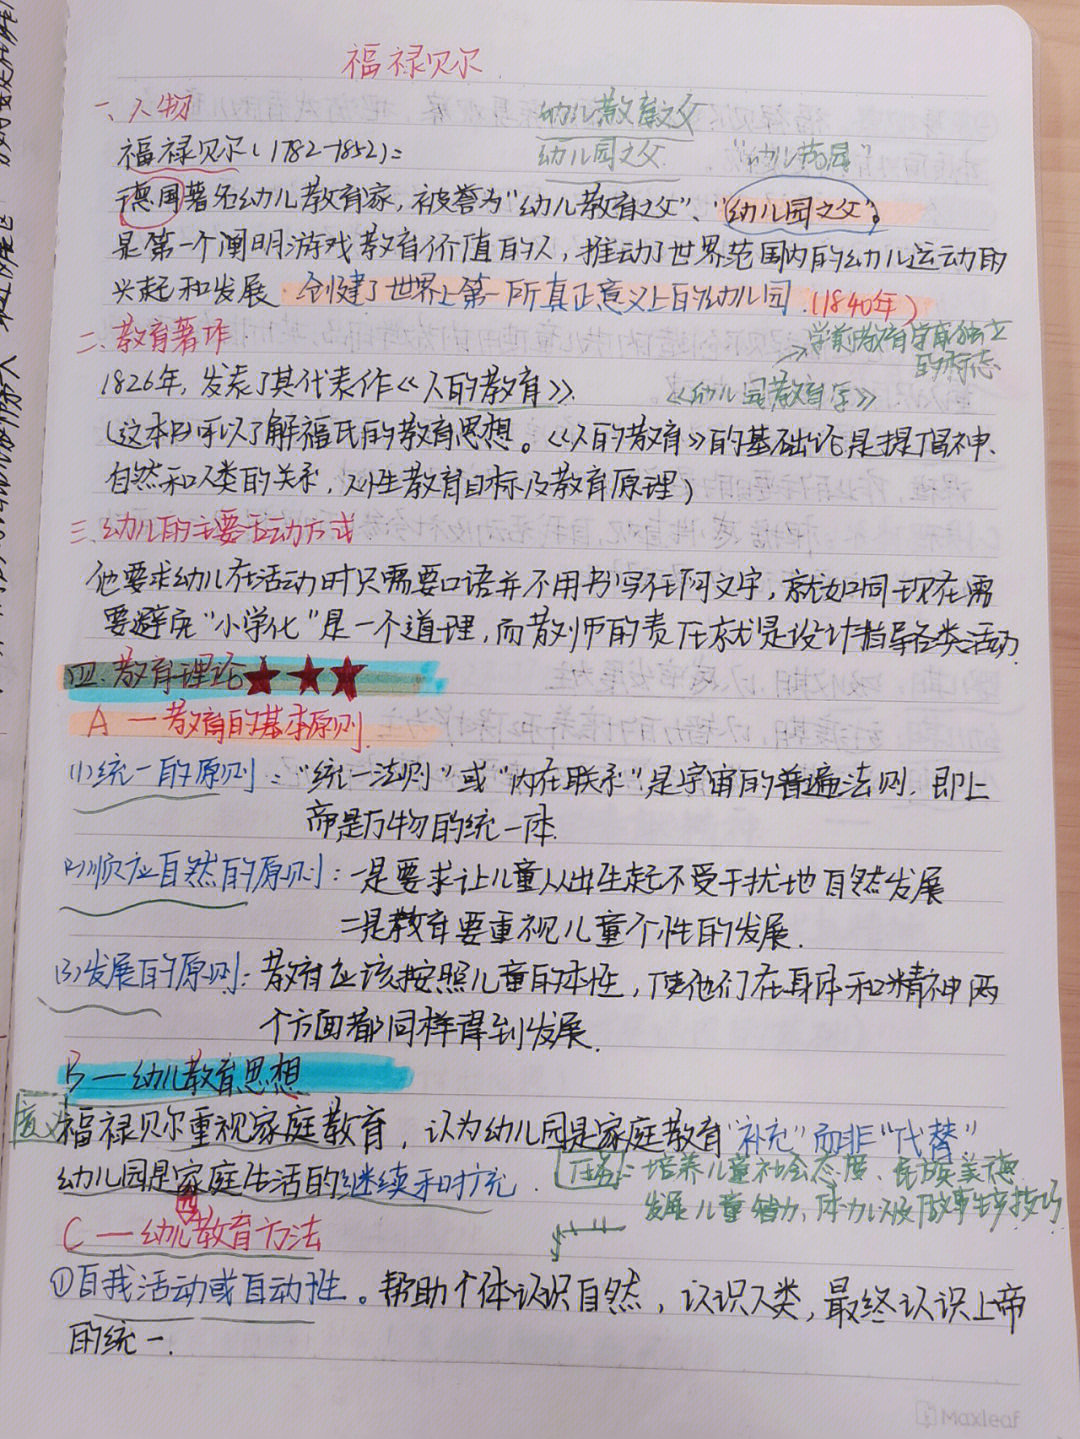 福禄贝尔
一、人物
幼儿教育之父
福禄贝尔(1782-1852):
幼儿园之父
德国著名幼儿教育家,被誉为“幼儿教育之父”、“幼儿园之父”,
是第一个阐明游戏教育价值的人,推动了世界范围内的幼儿运动的
兴起和发展 创建了世界上第一所真正意义上的幼儿园.(1840年)
二、教育著作
→学前教育学
独立
的标志
1826年,发表了其代表作《人的教育》.
《幼儿园教育学》
(这本书可以了解福氏的教育思想。《人的教育》的基础论是提倡神、
自然和人类的关系,人性教育目标及教育原理)
三、幼儿的主要活动方式
他要求幼儿在活动时只需要口语并不用书写任何文字,就如同现在需
要避免“小学化”是一个道理,而教师的责任就是设计指导各类活动.
四.教育理论★★★
A — 教育的基本原则.
(1)统一的原则:“统一法则”或“内在联系”是宇宙的普遍法则.即上
帝是万物的统一体.
(2)顺应自然的原则:一是要求让儿童从出生起不受干扰地自然发展
二是教育要重视儿童个性的发展.
(3)发展的原则:教育应该按照儿童的本性,使他们在身体和精神两
个方面都同样得到发展.
B — 幼儿教育思想
意义
福禄贝尔重视家庭教育,认为幼儿园是家庭教育“补充”而非“代替”
幼儿园是家庭生活的继续和扩充.
任务:培养儿童社会态度、民族美德,
发展儿童智力、体力以及
技巧
C — 幼儿教育方法
①自我活动或自动性。帮助个体认识自然,认识人类,最终认识上帝
的统一.
Maxleaf